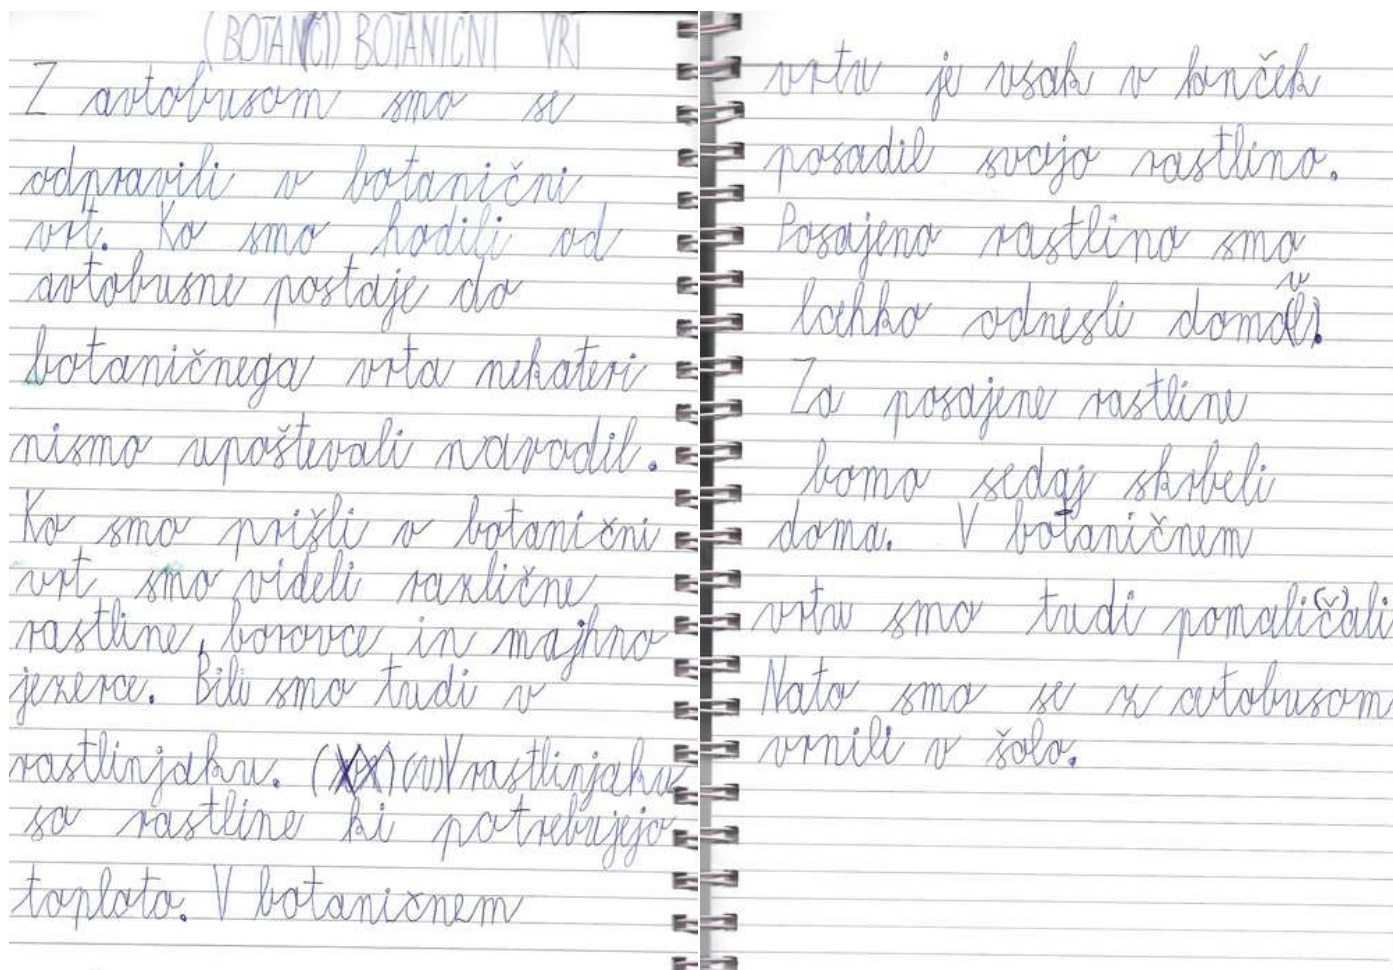 (BOTANČI) BOTANIČNI VRT
Z avtobusom smo se
odpravili v botanični
vrt. Ko smo hodili od
avtobusne postaje do
botaničnega vrta nekateri
nismo upoštevali navodil.
Ko smo prišli v botanični
vrt smo videli različne
rastline, borovce in majhno
jezerce. Bili smo tudi v
rastlinjaku. (v) V rastlinjaku
so rastline ki potrebujejo
toploto. V botaničnem
vrtu je vsak v lonček
posadil svojo rastlino.
Posajeno rastlino smo
lahko odnesli domov(l).
Za posajene rastline
bomo sedaj skrbeli
doma. V botaničnem
vrtu smo tudi pomali(v)čali
Nato smo se z avtobusom
vrnili v šolo.